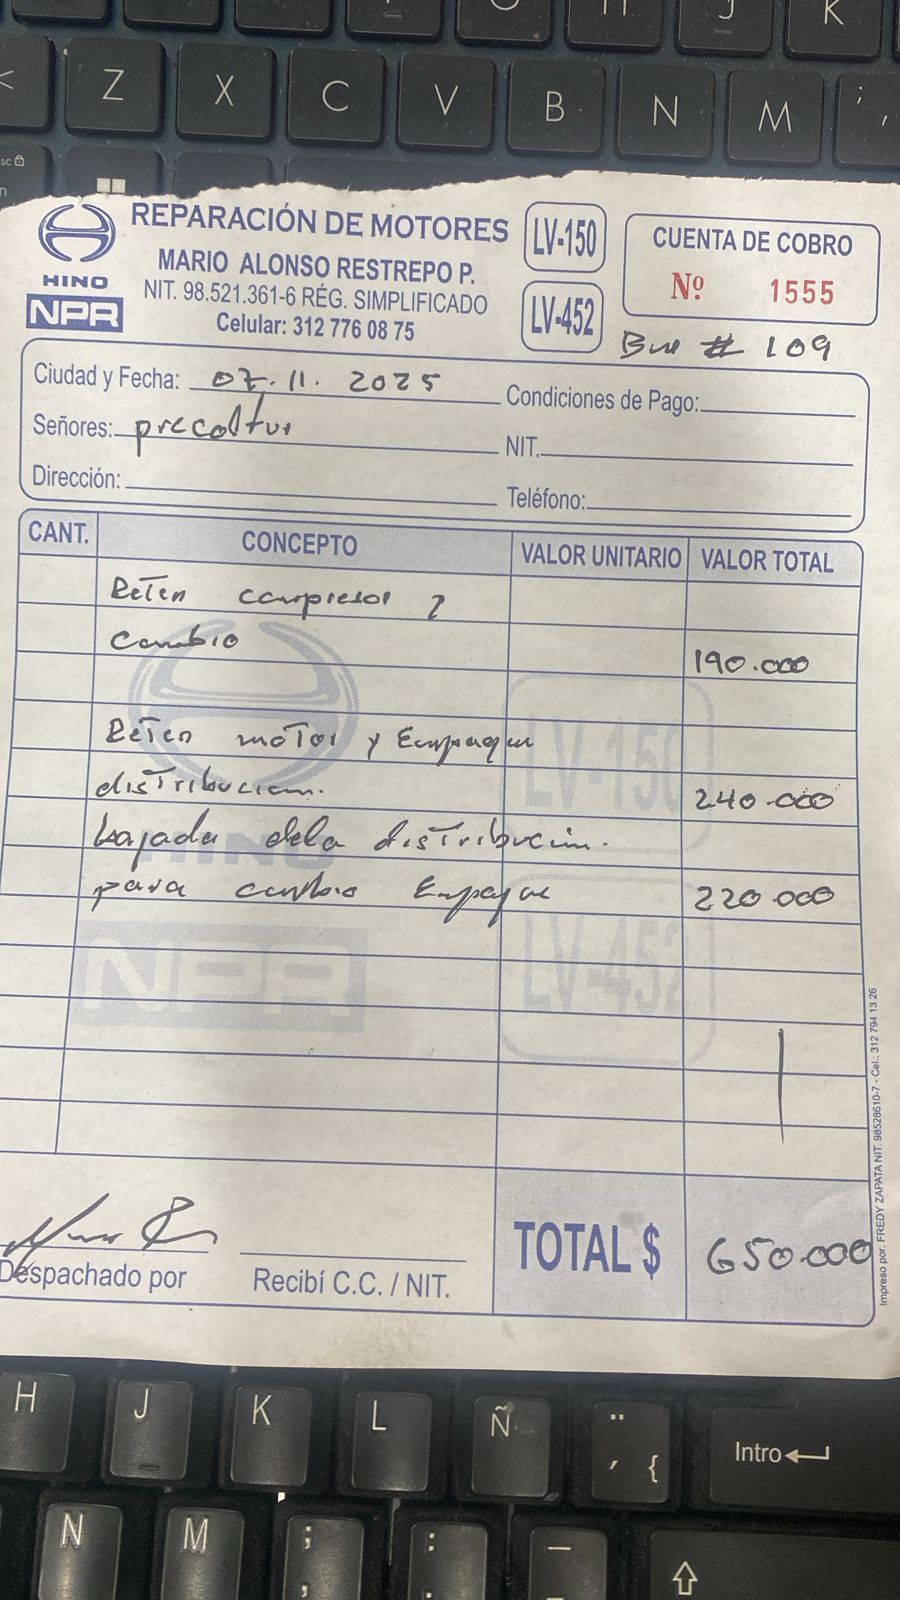 REPARACIÓN DE MOTORES
MARIO ALONSO RESTREPO P.
NIT. 98.521.361-6 RÉG. SIMPLIFICADO
Celular: 312 776 08 75
HINO
NPR
LV-150
LV-452
CUENTA DE COBRO
Nº 1555
Bus # 109
Ciudad y Fecha: 07.11.2025
Condiciones de Pago:
Señores: precoltur
NIT.
Dirección:
Teléfono:
CANT. CONCEPTO VALOR UNITARIO VALOR TOTAL
Reten compresor y
cambio 190.000
Reten motor y Empaque
distribucion. 240.000
bajada dela distribucion.
para cambio Empaque 220.000
HINO
NPR
LV-150
LV-452
TOTAL $ 650.000
Despachado por
Recibí C.C. / NIT.
Impreso por. FREDY ZAPATA NIT. 98528610-7 - Cel.: 312 794 13 26
Z X C V B N M
H J K L Ñ
Intro
N M